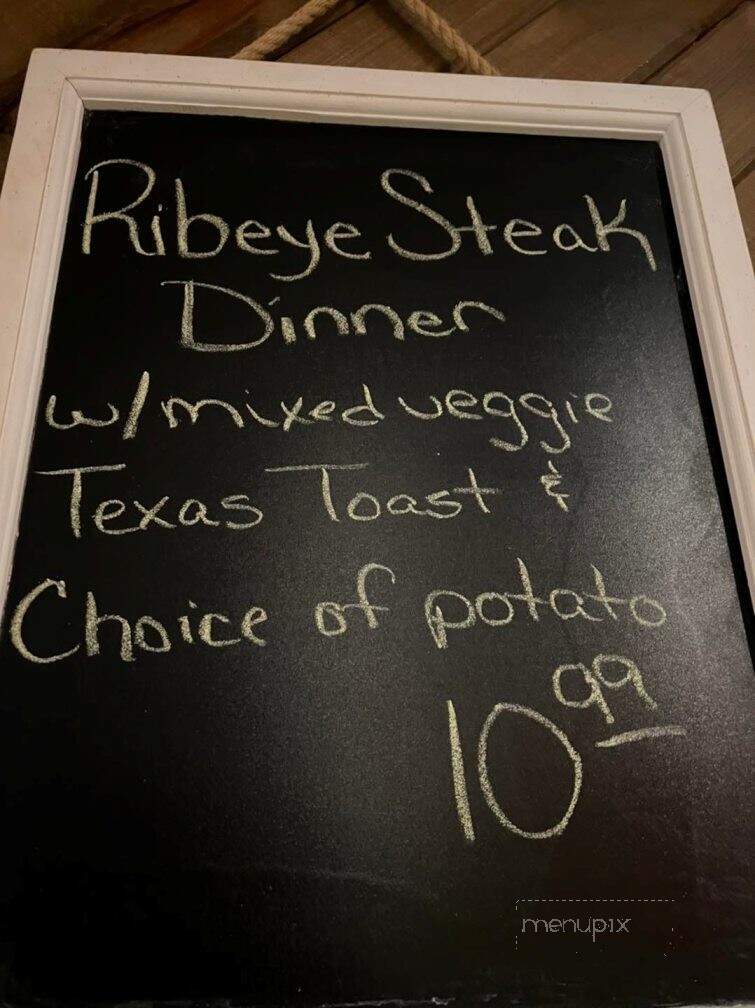 Ribeye Steak
Dinner
w/mixed veggie
Texas Toast &
Choice of potato
10 99
menupix